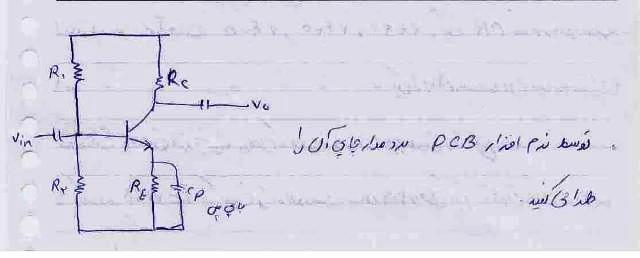 R۱
Rc
Vo
Vin
R۲
RE
CP
بای پس
توسط نرم افزار PCB برد مدار چاپی آن را
طراحی کنید.